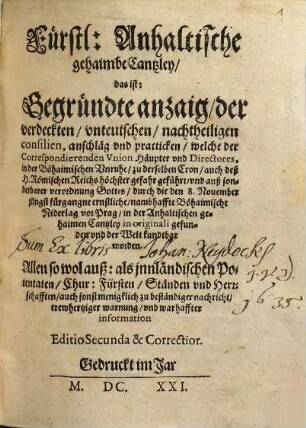 1
Fürstl: Anhaltische
gehaimbe Cantzley/
das ist:
Begründte anzaig/der
verdeckten/vnteutschen/nachtheiligen
consilien, anschläg vnd practicken/welche der
Correspondierenden Vnion Häupter vnd Directores,
in der Böhaimischen Vnruhe/zu derselben Cron/auch deß
H. Römischen Reichs höchster gefahr geführt/vnd auß son-
derbarer verordnung Gottes/durch die den 8. Nouember
jüngst fürgangne ernstliche/nambhaffte Böhaimische
Niderlag vor Prag/in der Anhaltischen ge-
haimen Cantzley in originali gefun-
den vnd der Welt kundtbar
worden.
Sum Ex libris Johan.
Allen so wol auß: als jnnländischen Po-
tentaten/Chur: Fürsten/Ständen vnd Herr-
schafften/auch sonst menigklich zu beständiger nachricht/
trewhertziger warnung/vnd warhaffter
information
1635.
Editio Secunda & Correctior.
Gedruckt im Jar
M. DC. XXI.